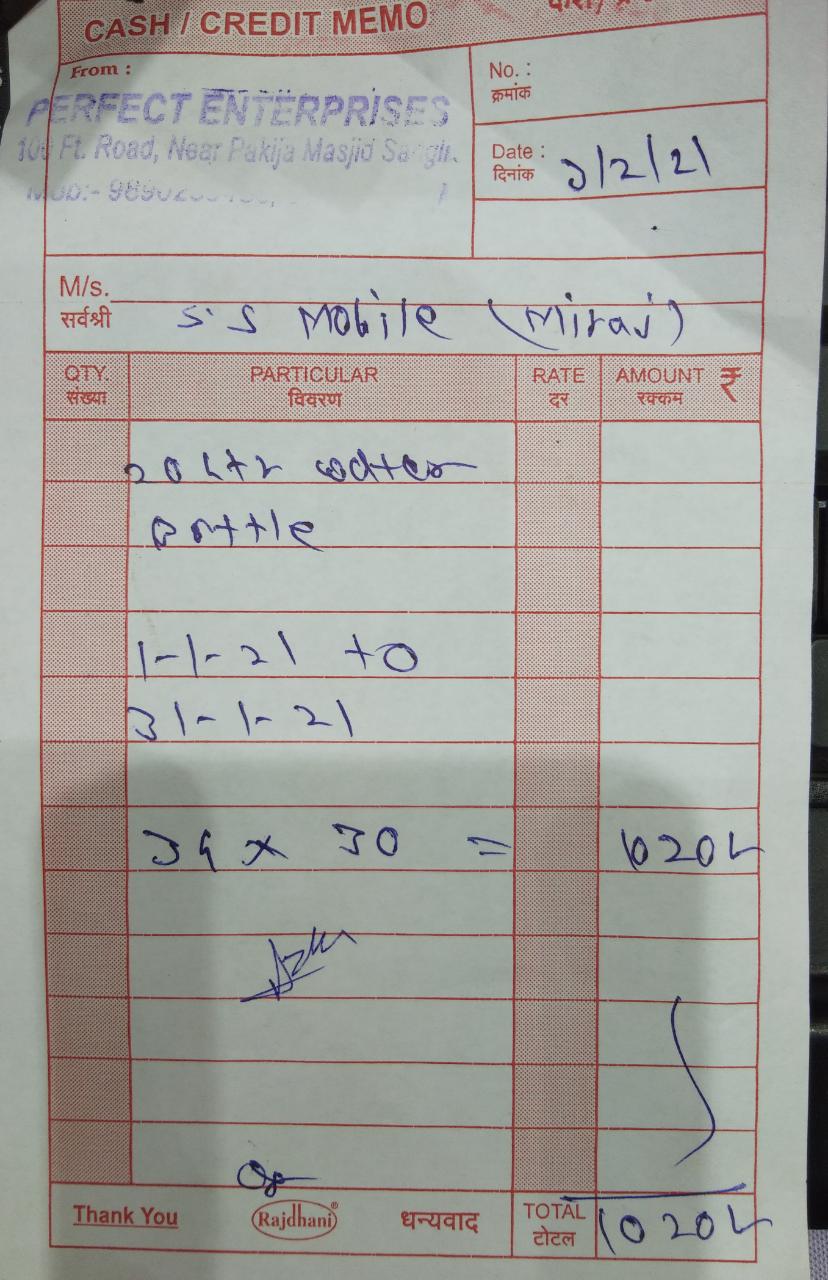 CASH / CREDIT MEMO
From :
PERFECT ENTERPRISES
100 Ft. Road, Near Pakija Masjid Sangli.
Mob:-
No. :
क्रमांक
Date : 3/2/21
दिनांक
M/s.
सर्वश्री S.S Mobile (Miraj)
QTY. PARTICULAR RATE AMOUNT ₹
संख्या विवरण दर रक्कम
20 Ltr water
Bottle
1-1-21 to
31-1-21
34 x 30 = 1020/-
Thank You Rajdhani® धन्यवाद TOTAL 1020/-
टोटल